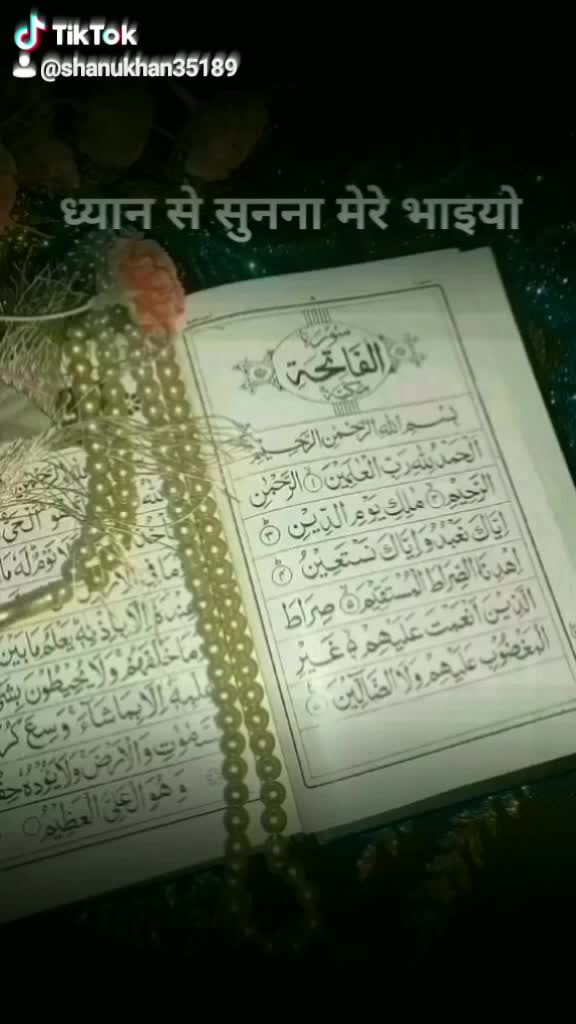 TikTok
@shanukhan35189
ध्यान से सुनना मेरे भाइयो
سورة
الفاتحة
مكية
بسم الله الرحمن الرحيم
الحمد لله رب العلمين ۱ الرحمن
الرحيم ۲ ملك يوم الدين ۳
اياك نعبد واياك نستعين ۴
اهدنا الصراط المستقيم ۵ صراط
الذين انعمت عليهم ۶ غير
المغضوب عليهم ولا الضالين
عنده الا باذنه يعلم ما بين
ما خلفهم ولا يحيطون بشی
علمه الا بما شاء وسع كر
والارض ولا يؤده حف
وهو العلی العظيم